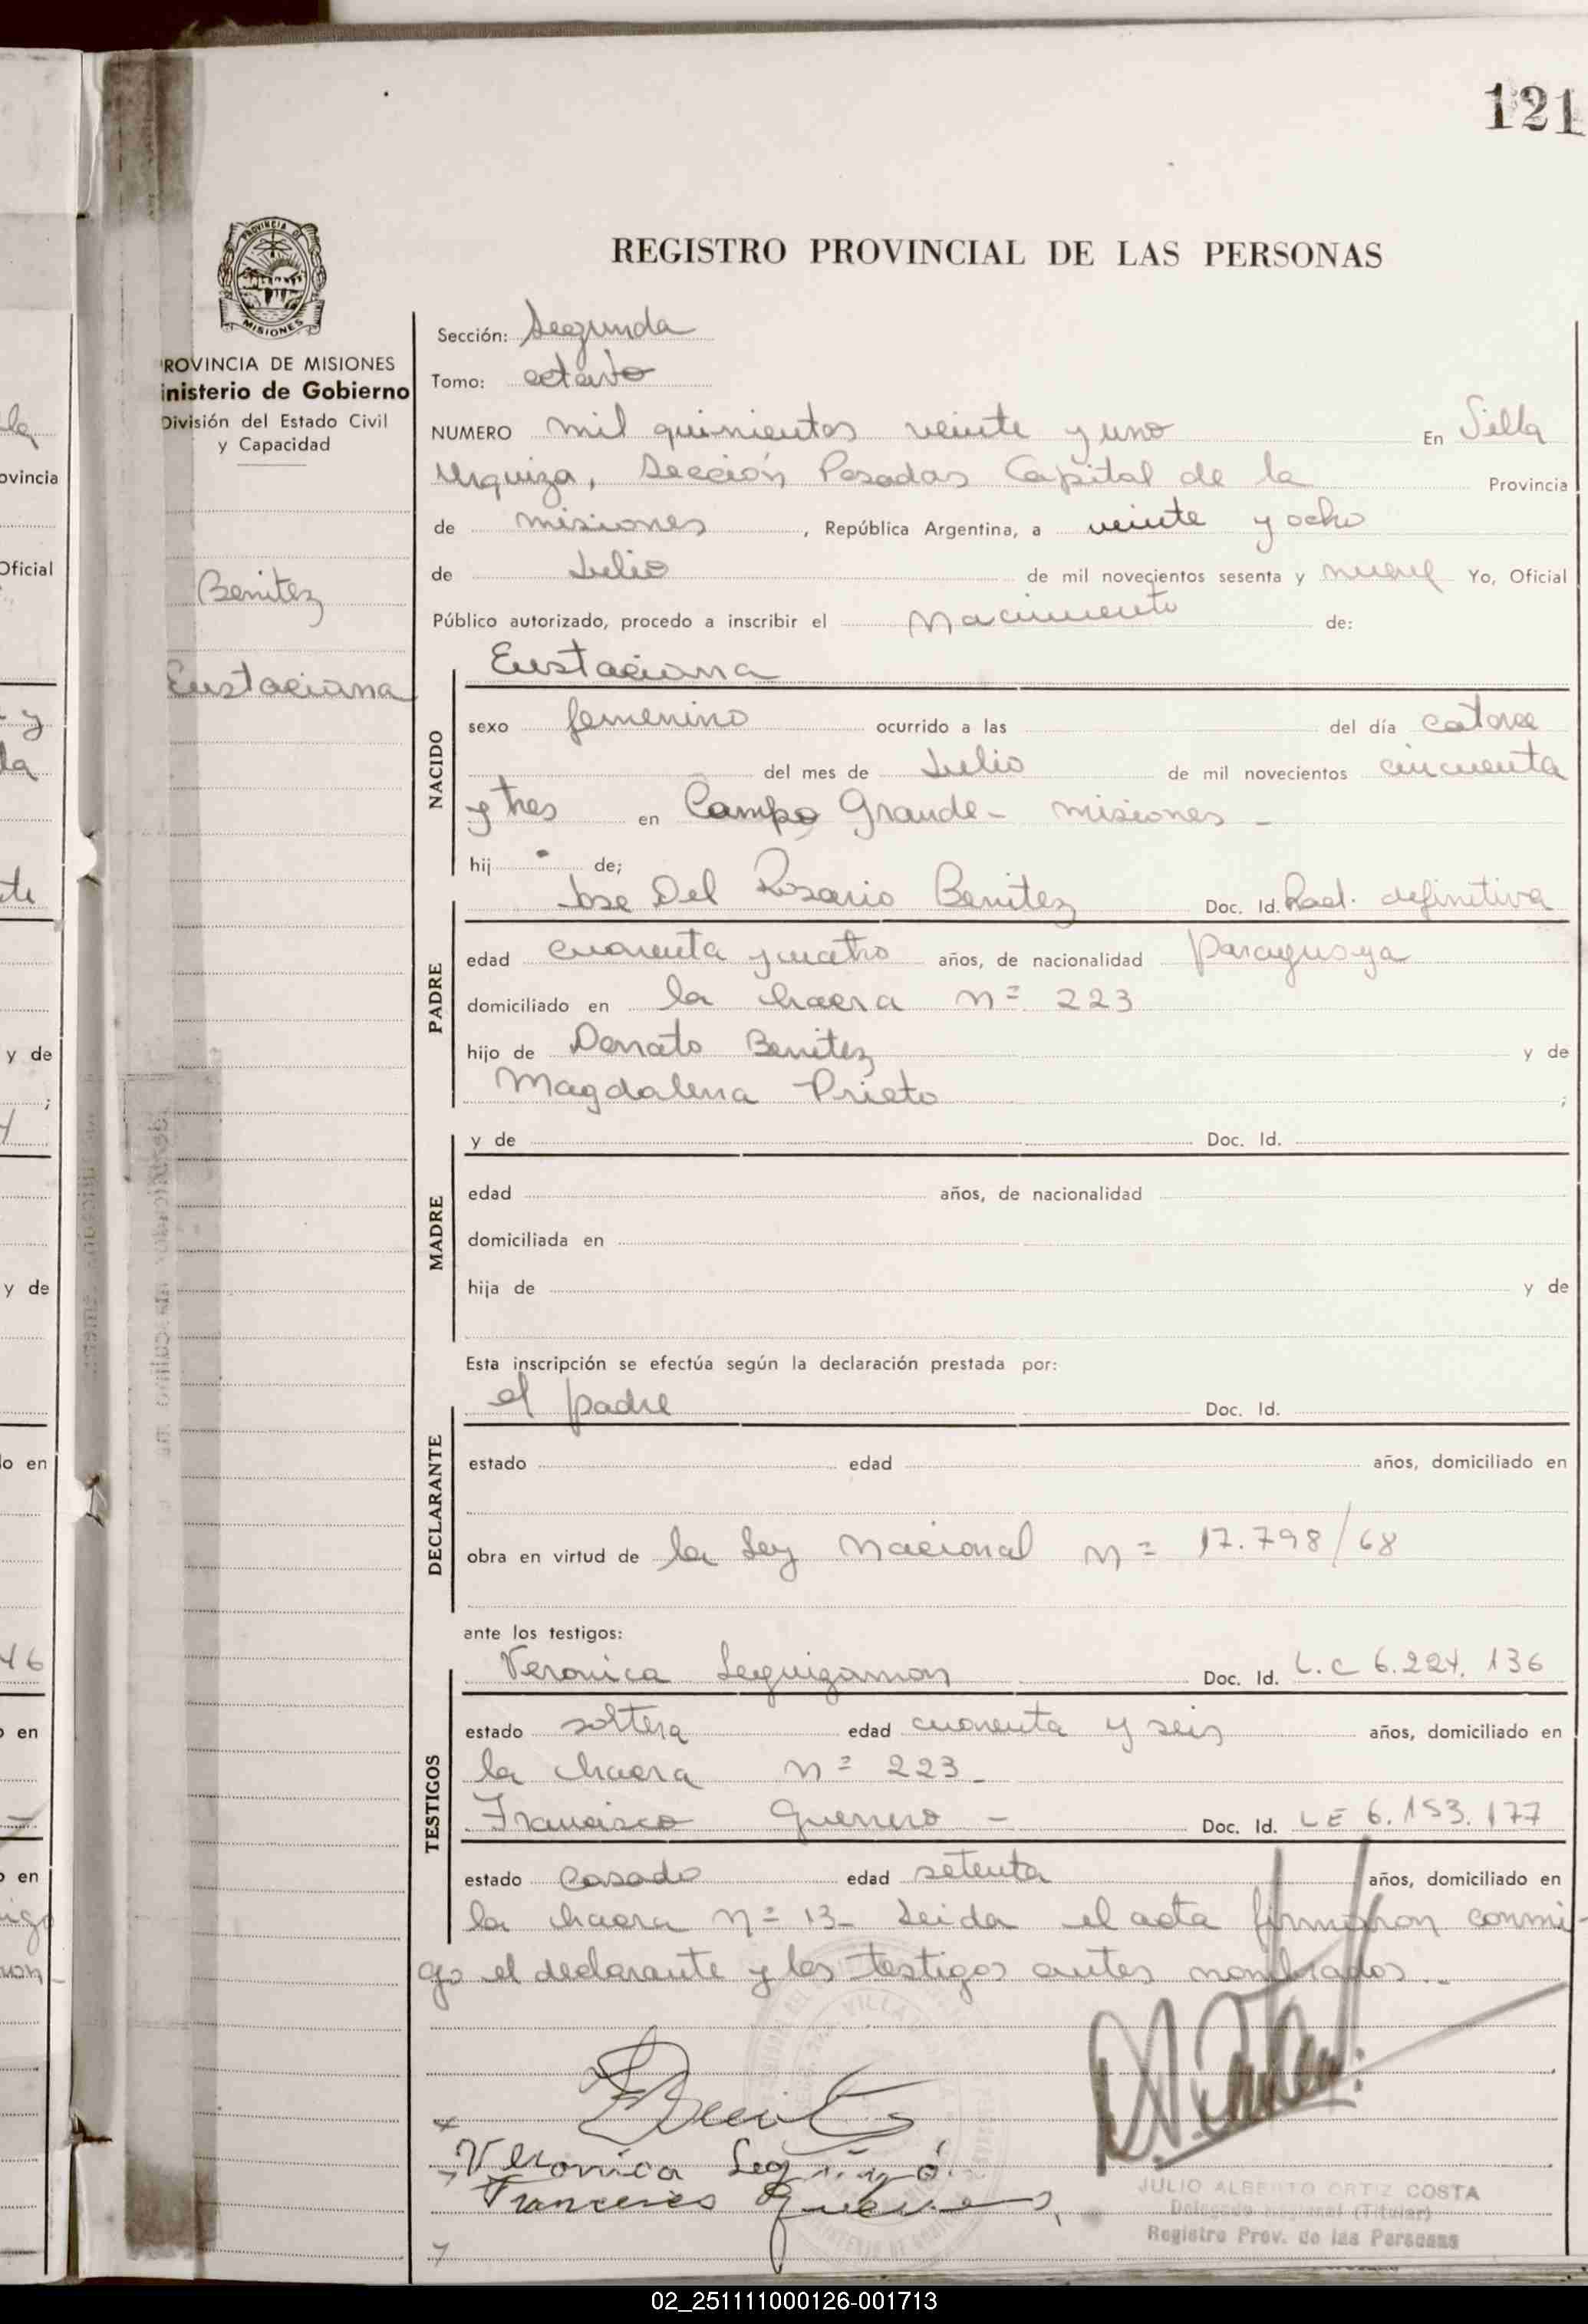 121
REGISTRO PROVINCIAL DE LAS PERSONAS
PROVINCIA DE
MISIONES
ROVINCIA DE MISIONES
inisterio de Gobierno
División del Estado Civil
y Capacidad
Benitez
Eustaciana
Sección: Segunda
Tomo: octavo
NUMERO mil quinientos veinte y uno En Villa
Urquiza, Sección Posadas Capital de la Provincia
de misiones, República Argentina, a veinte y ocho
de Julio de mil novecientos sesenta y nueve Yo, Oficial
Público autorizado, procedo a inscribir el Nacimiento de:
Eustaciana
NACIDO
sexo femenino ocurrido a las del día catorce
del mes de Julio de mil novecientos cincuenta
y tres en Campo Grande - misiones -
hij de;
Jose Del Rosario Benitez Doc. Id. Rad. definitiva
PADRE
edad cuarenta y cuatro años, de nacionalidad paraguaya
domiciliado en la chacra nº 223
hijo de Donato Benitez y de
Magdalena Prieto ;
MADRE
y de Doc. Id.
edad años, de nacionalidad
domiciliada en
hija de y de
Esta inscripción se efectúa según la declaración prestada por:
DECLARANTE
el padre Doc. Id.
estado edad años, domiciliado en
obra en virtud de la Ley Nacional nº 17.798/68
ante los testigos:
TESTIGOS
Veronica Leguizamon Doc. Id. L.C 6.224.136
estado soltera edad cuarenta y seis años, domiciliado en
la chacra nº 223 -
Francisco Guerrero - Doc. Id. LE 6.153.177
estado casado edad setenta años, domiciliado en
la chacra nº 13 - Leida el acta firmaron conmi-
go el declarante y los testigos antes nombrados. -
Veronica
JULIO ALBERTO ORTIZ COSTA
Registro Prov. de las Personas
02_251111000126-001713